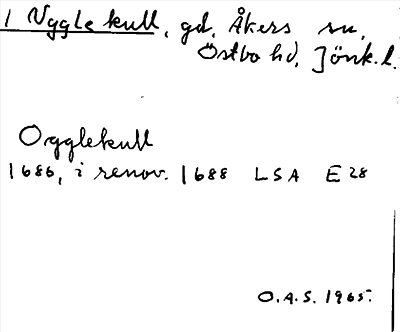 1 Ugglekull, gd, Åkers sn,
Östbo hd, Jönk.l.
Ogglekull
1686, i renov. 1688 LSA E28
O.A.S. 1965.